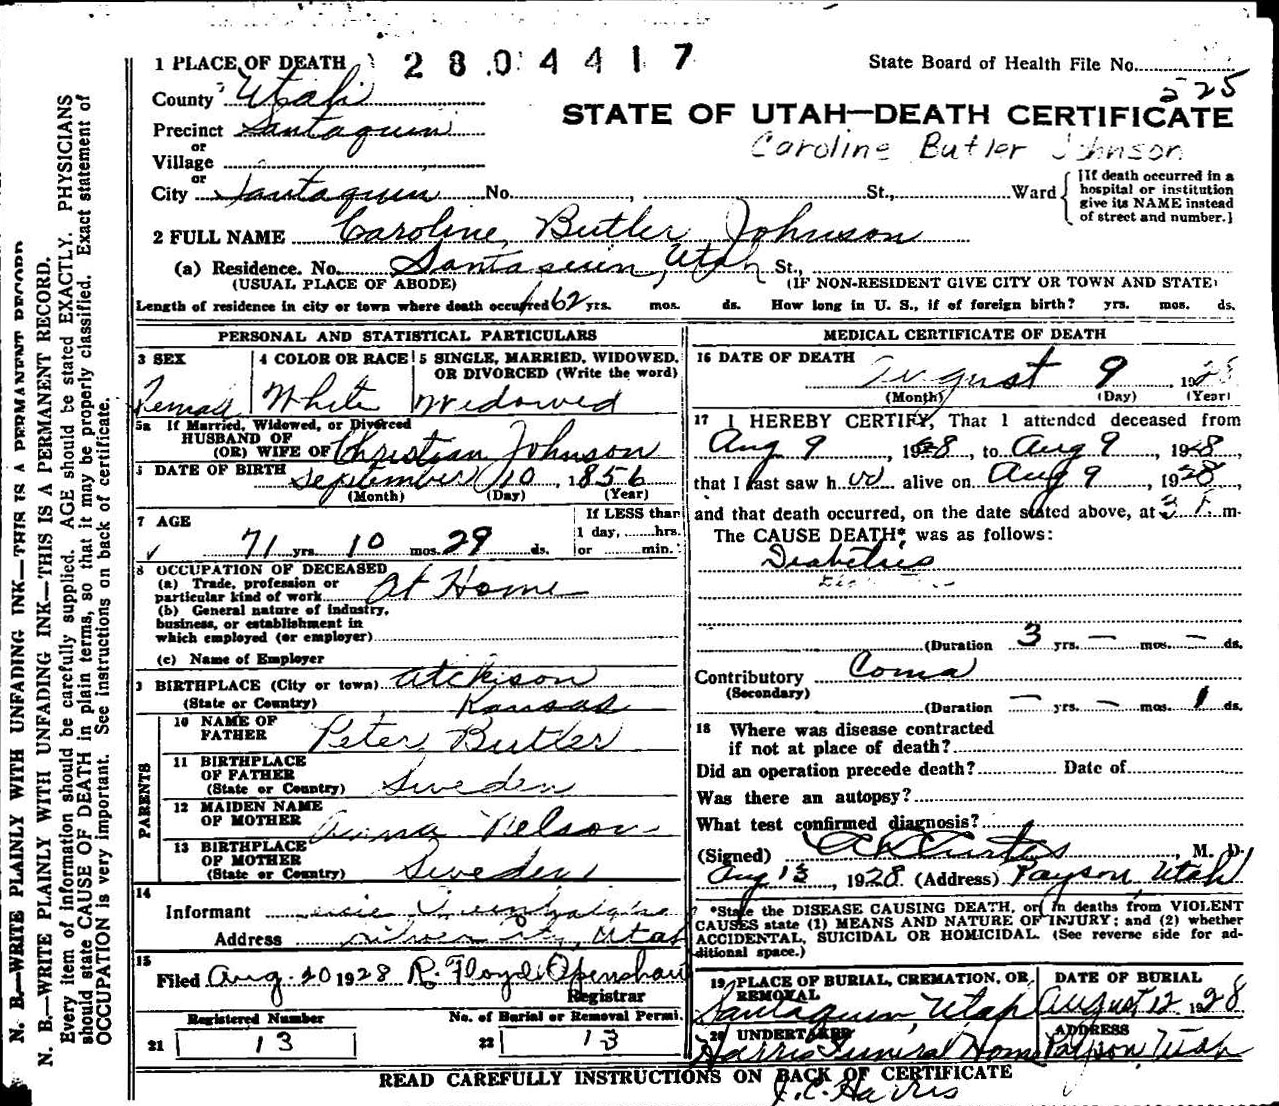 1 PLACE OF DEATH
2804417
State Board of Health File No.
225
County Utah
STATE OF UTAH—DEATH CERTIFICATE
Precinct Santaquin
Caroline Butler Johnson
or
Village
or
City Santaquin No. St., Ward
[If death occurred in a
hospital or institution
give its NAME instead
of street and number.]
2 FULL NAME Caroline Butler Johnson
(a) Residence. No. Santaquin, Utah St.,
(USUAL PLACE OF ABODE) (IF NON-RESIDENT GIVE CITY OR TOWN AND STATE)
Length of residence in city or town where death occurred 62 yrs. mos. ds. How long in U. S., if of foreign birth? yrs. mos. ds.
PERSONAL AND STATISTICAL PARTICULARS
3 SEX
Female
4 COLOR OR RACE
White
5 SINGLE, MARRIED, WIDOWED,
OR DIVORCED (Write the word)
Widowed
5a If Married, Widowed, or Divorced
HUSBAND OF
(OR) WIFE OF Christian Johnson
DATE OF BIRTH September 10, 1856
(Month) (Day) (Year)
7 AGE
71 yrs. 10 mos. 29 ds.
If LESS than
1 day, hrs.
or min.
8 OCCUPATION OF DECEASED
(a) Trade, profession or
particular kind of work At Home
(b) General nature of industry,
business, or establishment in
which employed (or employer)
(c) Name of Employer
9 BIRTHPLACE (City or town) Atchison
(State or Country) Kansas
PARENTS
10 NAME OF
FATHER Peter Butler
11 BIRTHPLACE
OF FATHER
(State or Country) Sweden
12 MAIDEN NAME
OF MOTHER Anna Nelson
13 BIRTHPLACE
OF MOTHER
(State or Country) Sweden
14
Informant
Address Silver City, Utah
15
Filed Aug. 20 1928 R. Floyd Openshaw
Registrar
Registered Number No. of Burial or Removal Permit
21 13 22 13
MEDICAL CERTIFICATE OF DEATH
16 DATE OF DEATH
August 9, 1928
(Month) (Day) (Year)
17 I HEREBY CERTIFY, That I attended deceased from
Aug 9, 1928, to Aug 9, 1928,
that I last saw her alive on Aug 9, 1928,
and that death occurred, on the date stated above, at 3 P. m.
The CAUSE DEATH* was as follows:
Diabetis
(Duration 3 yrs. — mos. — ds.
Contributory Coma
(Secondary)
(Duration — yrs. — mos. 1 ds.
18 Where was disease contracted
if not at place of death?
Did an operation precede death? Date of
Was there an autopsy?
What test confirmed diagnosis?
(Signed) Curtis, M. D.
Aug 13, 1928. (Address) Payson, Utah
*State the DISEASE CAUSING DEATH, or, in deaths from VIOLENT
CAUSES state (1) MEANS AND NATURE OF INJURY; and (2) whether
ACCIDENTAL, SUICIDAL OR HOMICIDAL. (See reverse side for ad-
ditional space.)
19 PLACE OF BURIAL, CREMATION, OR
REMOVAL
Santaquin, Utah
DATE OF BURIAL
August 12, 1928
20 UNDERTAKER
Harris Funeral Home
ADDRESS
Payson, Utah
READ CAREFULLY INSTRUCTIONS ON BACK OF CERTIFICATE
J. C. Harris
N. B.—WRITE PLAINLY WITH UNFADING INK—THIS IS A PERMANENT RECORD
N. B.—WRITE PLAINLY WITH UNFADING INK—THIS IS A PERMANENT RECORD.
Every item of information should be carefully supplied. AGE should be stated EXACTLY. PHYSICIANS
should state CAUSE OF DEATH in plain terms, so that it may be properly classified. Exact statement of
OCCUPATION is very important. See instructions on back of certificate.